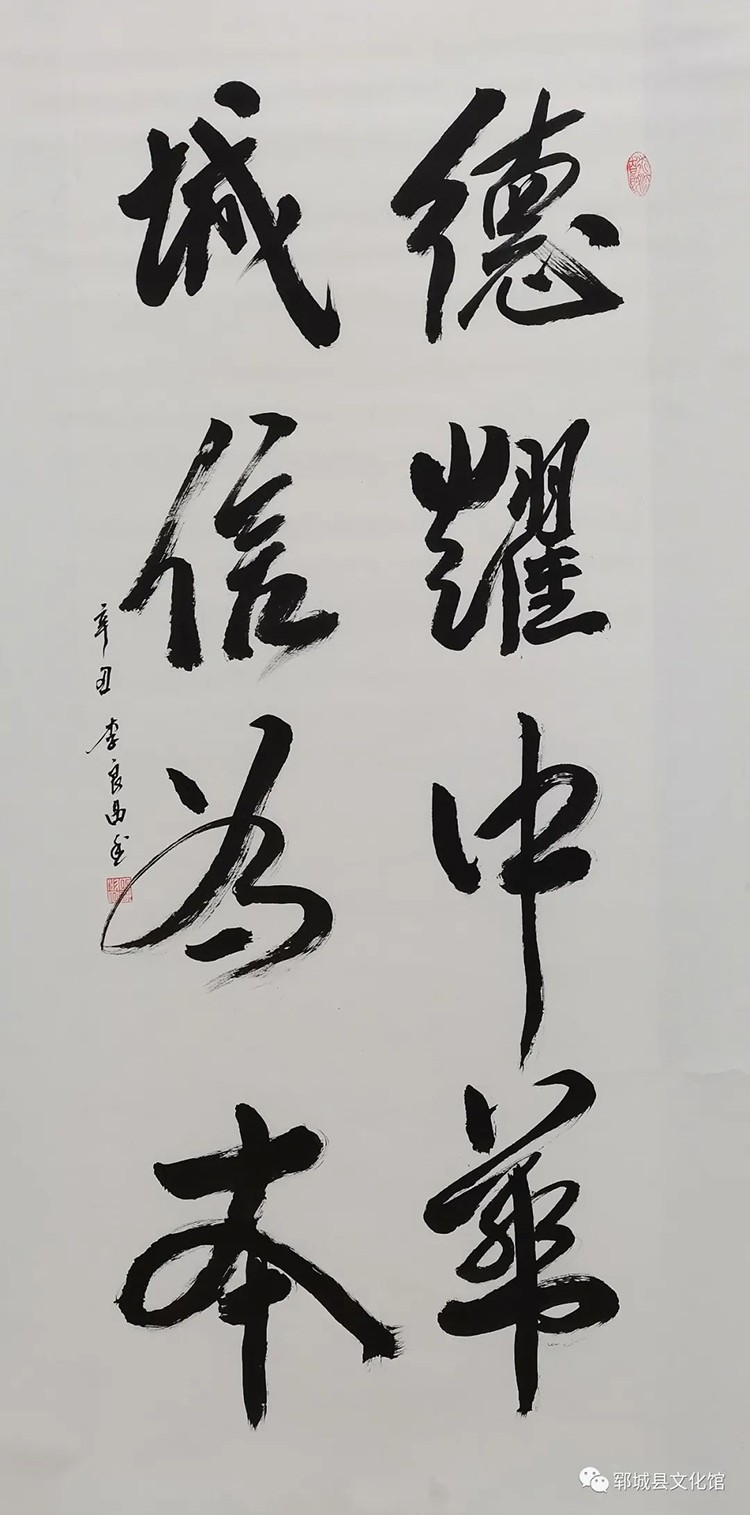 德耀中華
城信为本
辛丑 李良昌书
郓城县文化馆